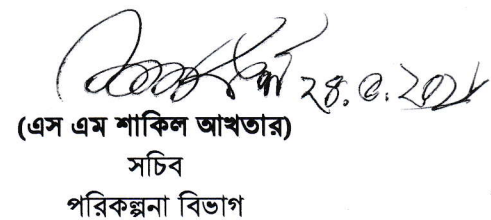 ২৪.৫.২০২৬
(এস এম শাকিল আখতার)
সচিব
পরিকল্পনা বিভাগ